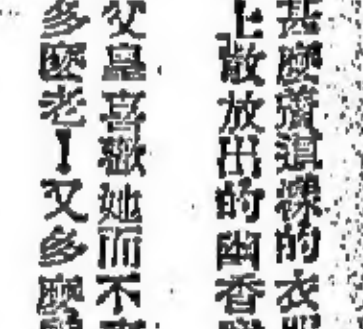 甚麼裸的衣
上散放出的幽香
父皇喜歡她而不
多麼老！又多麼